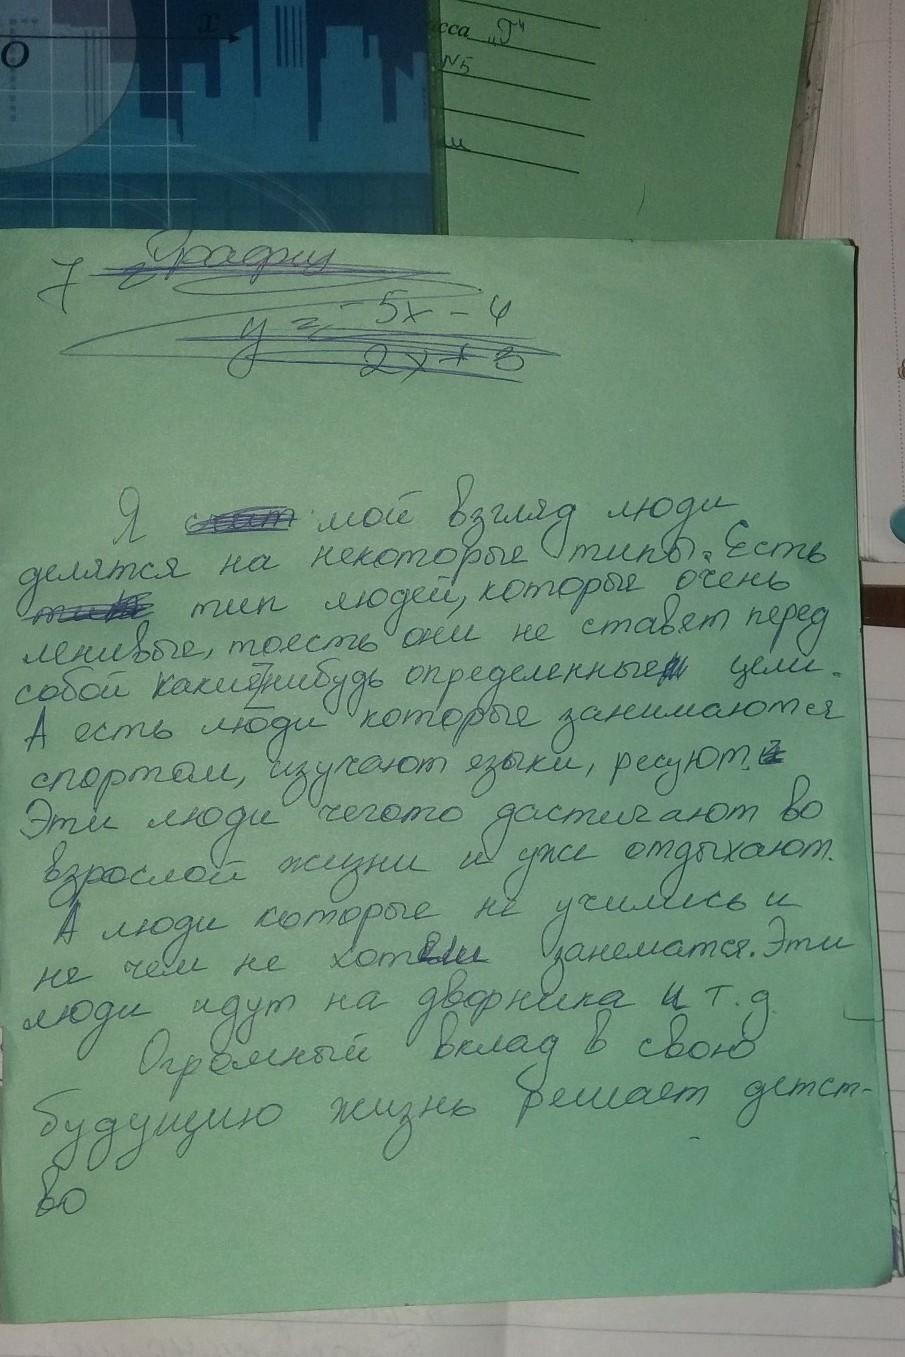 O x
сса „Т“
N5
и
7 График
y = -5x - 4
2x + 3
Я счит мой взгляд люди
делятся на некоторые типы. Есть
тип людей, которые очень
ленивые, тоесть они не ставят перед
собой какие-нибудь определенные цели.
А есть люди которые занимаются
спортом, изучают языки, ресуют.
Эти люди чегото дастигают во
взрослой жизни и уже отдыхают.
А люди которые не учились и
не чем не хотели занематся. Эти
люди идут на дворника и т.д
Огромный вклад в свою
будущию жизнь решает детст-
во